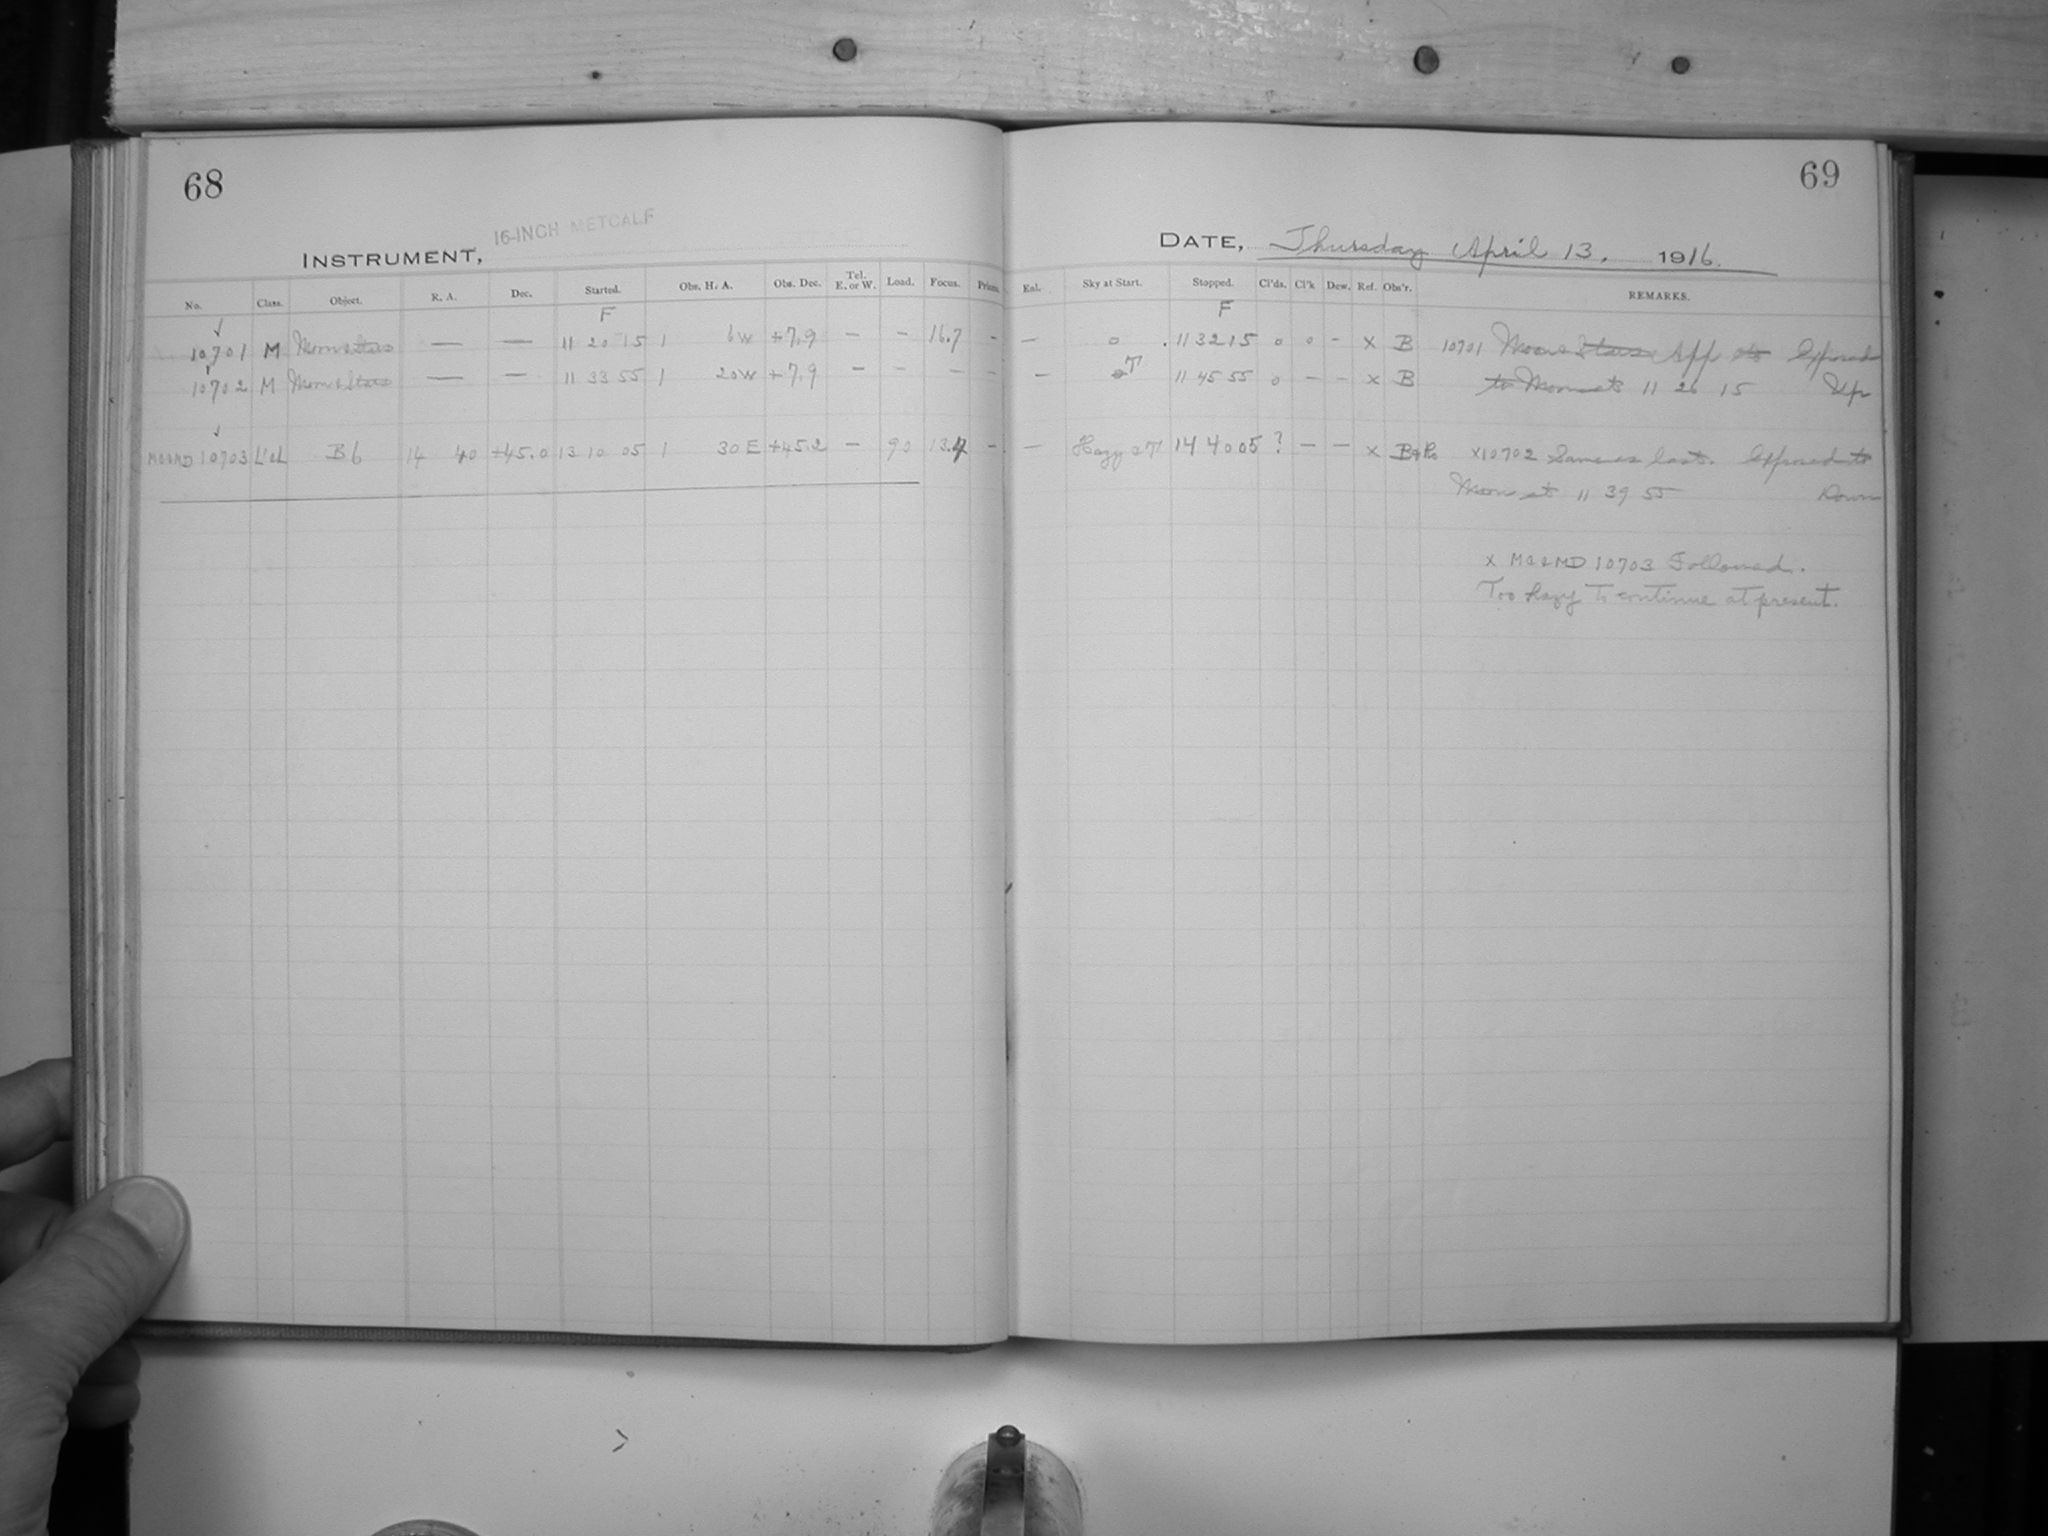 68
16-INCH METCALF
INSTRUMENT,
No. Class. Object. R. A. Dec. Started. Obs. H. A. Obs. Dec. Tel. E. or W. Load. Focus. Prism.
F
10701 M Moon & Stars — — 11 20 15 1 6 W +7.9 — — 16.7 -
10702 M Moon & Stars — — 11 33 55 1 20 W +7.9 — - — -
MC & MD 10703 B6 14 40 +45.0 13 10 05 1 30 E +45.2 — 90 13.4 -
69
DATE, Thursday April 13, 1916.
Enl. Sky at Start. Stopped. Cl'ds. Cl'k Dew. Ref. Obs'r. REMARKS.
F
— 0 11 32 15 0 0 - x B 10701 Moon & Stars App Exposed
— T 11 45 55 0 — - x B to Moon at 11 26 15 Up
— Hazy 14 40 05 ? — — x x10702 Same as last. Exposed to
Moon at 11 39 55 Down
x MC & MD 10703 Followed.
Too hazy to continue at present.